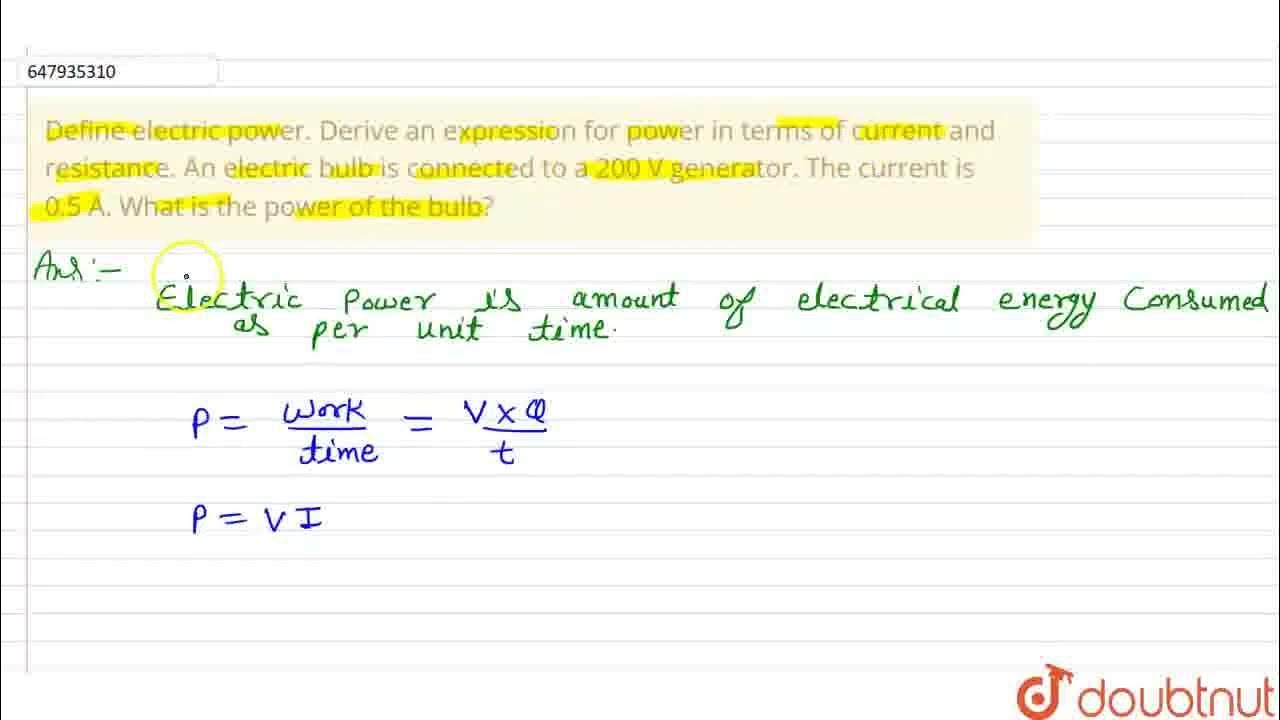 647935310
Define electric power. Derive an expression for power in terms of current and
resistance. An electric bulb is connected to a 200 V generator. The current is
0.5 A. What is the power of the bulb?
Ans :-
Electric Power is amount of electrical energy Consumed
as per unit time.
P = work/time = V x Q/t
P = V I
doubtnut